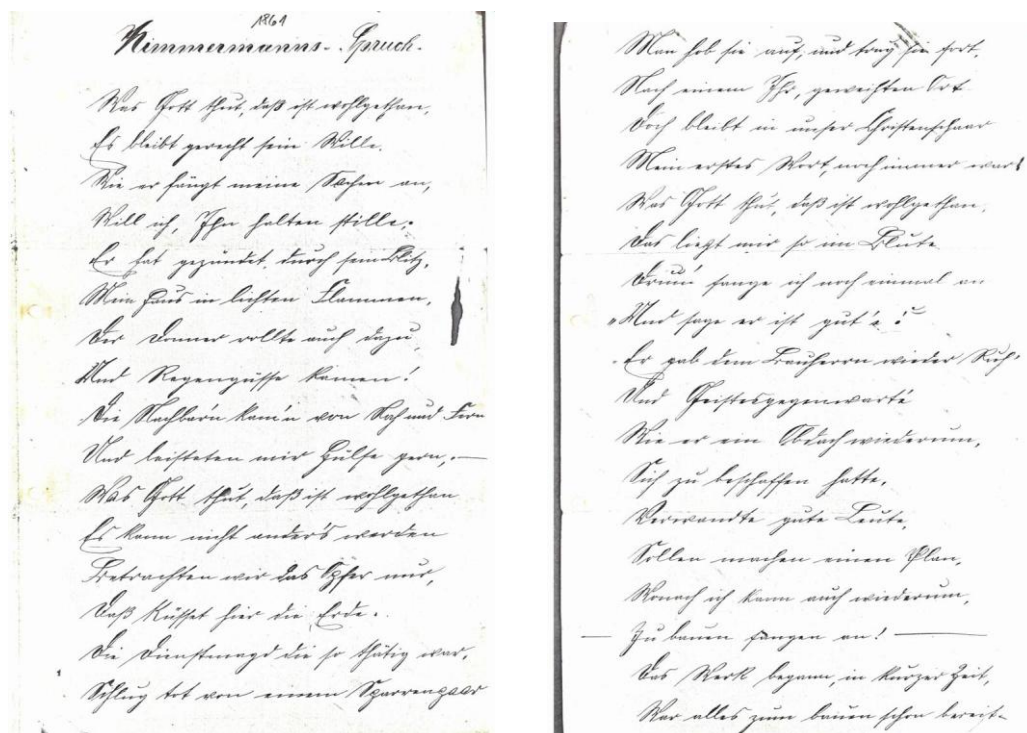 1861
Zimmermanns-Spruch.
Was Gott thut, daß ist wohlgethan,
Es bleibt gerecht sein Wille.
Wie er fängt meine Sachen an,
Will ich, Ihn halten stille.
Er hat gezündet, durch sein Blitz,
Mein Haus in lichten Flammen,
Der Donner rollte auch dazu,
Und Regengüsse kamen!
Die Nachbar'n kam'n von Nah und Fern
Und leisteten mir Hülfe gern,.—
Was Gott thut, daß ist wohlgethan
Es kann nicht anders werden
Betrachten wir das Opfer nur,
Daß küsset hier die Erde.
Die Dienstmagd die so thätig war,
Schlug tot von einem Sparrenpaar
Man hob sie auf, und trug sie fort,
Nach einem Ihr, geweihten Ort
Doch bleibt in unser Christenschaar
Mein erstes Wort, noch immer war!
Was Gott thut, daß ist wohlgethan,
Das liegt mir so im Blute
Drum fange ich noch einmal an
Und sage er ist gut'e
Er gab dem Bauherrn wieder Ruh'
Und Geistesgegenwarte
Wie er ein Obdach wiederum,
Sich zu beschaffen hatte,
Verwandte gute Leute,
Sollen machen einen Plan,
Wonach ich kann auch wiederum,
— Zu bauen fangen an! —
Das Werk begann, in kurzer Zeit,
War alles zum bauen schon bereit-